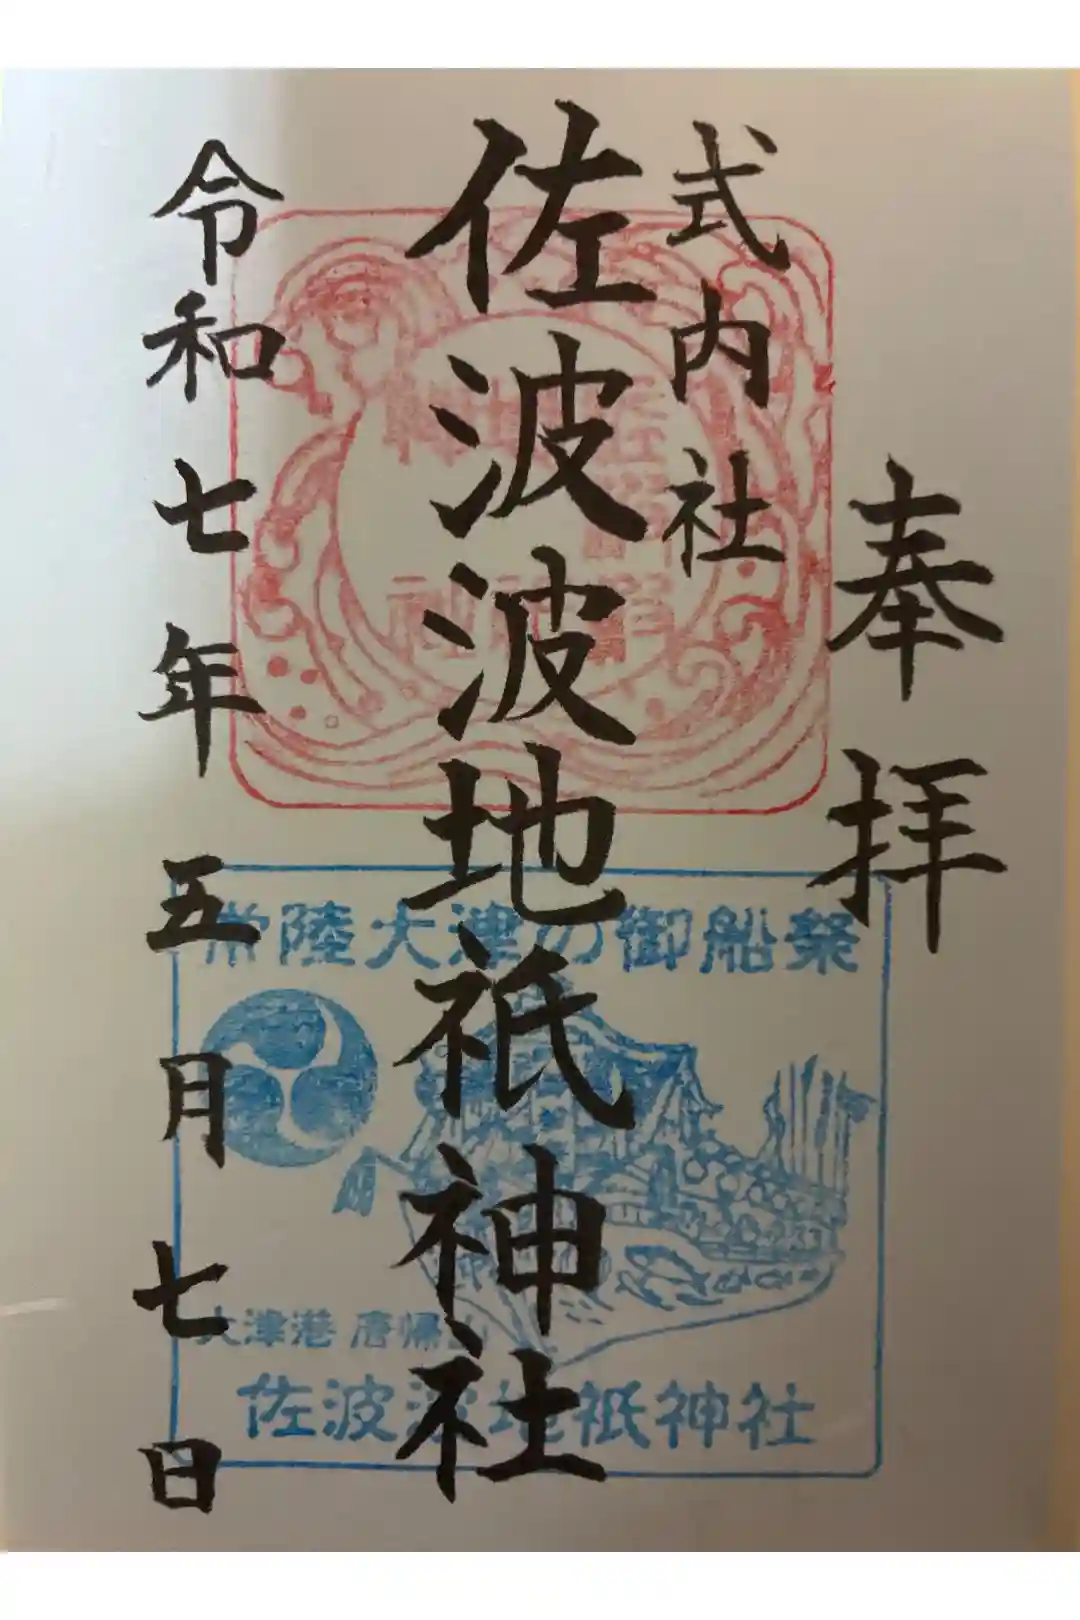 奉拝
式内社
佐波波地祇神社
令和七年五月七日
常陸大津の御船祭
大津港 唐帰山
佐波波地祇神社